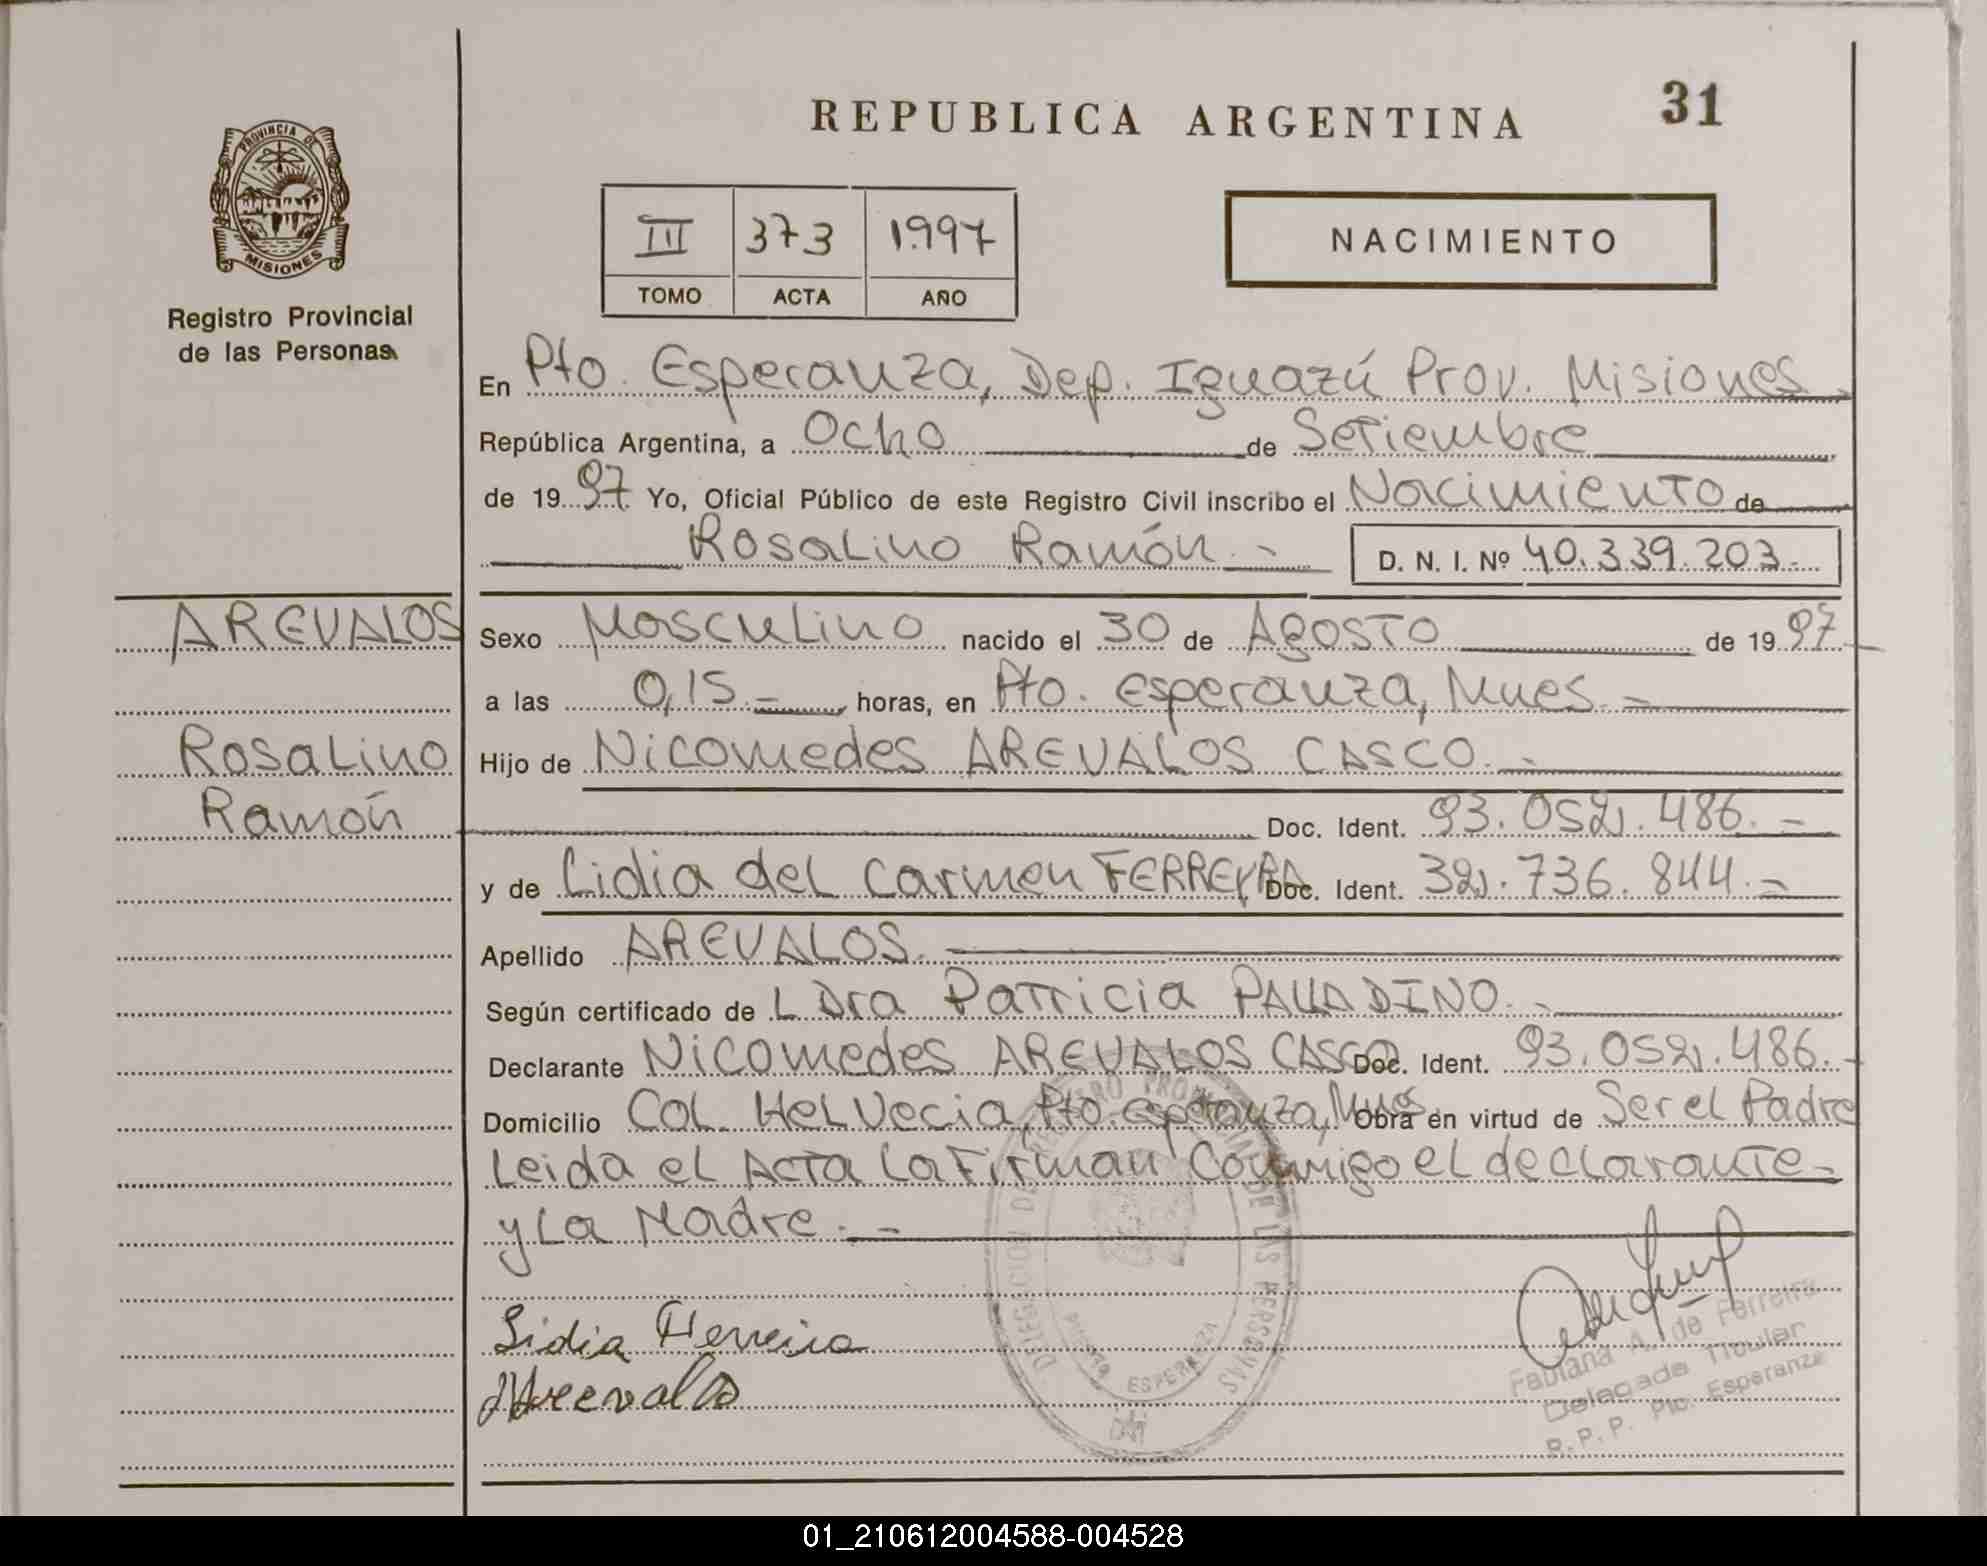 REPUBLICA ARGENTINA
31
PROVINCIA DE
MISIONES
Registro Provincial
de las Personas
III 373 1997
TOMO ACTA AÑO
NACIMIENTO
En Pto. Esperanza, Dep. Iguazú Prov. Misiones
República Argentina, a Ocho de Setiembre
de 1997 Yo, Oficial Público de este Registro Civil inscribo el Nacimiento de
Rosalino Ramón.-
D. N. I. Nº 40.339.203.-
AREVALOS
Rosalino
Ramón
Sexo Masculino nacido el 30 de Agosto de 1997
a las 0,15.- horas, en Pto. Esperanza, Mnes.-
Hijo de Nicomedes AREVALOS CASCO.-
Doc. Ident. 93.052.486.-
y de Lidia del Carmen FERREYRA Doc. Ident. 32.736.844.-
Apellido AREVALOS.-
Según certificado de L Dra Patricia PALLADINO.-
Declarante Nicomedes AREVALOS CASCO Doc. Ident. 93.052.486.-
Domicilio Col. Helvecia, Pto. Esperanza, Mnes Obra en virtud de Ser el Padre
Leida el Acta la Firman Conmigo el declarante
y La Madre.-
Lidia Ferreira
Arevalo
DELEGACION DEL REGISTRO PROVINCIAL DE LAS PERSONAS
PUERTO ESPERANZA
Fabiana A. de Ferreira
Delegada Titular
R.P.P. Pto. Esperanza
01_210612004588-004528